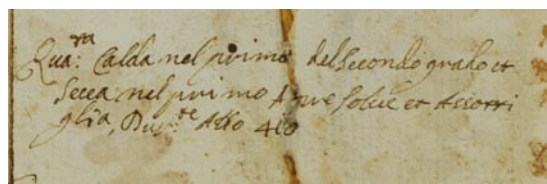 Qua.ra Calda nel primo del secondo grado et
secca nel primo apre solue et Assotti
glia, Dur.te Asso 410